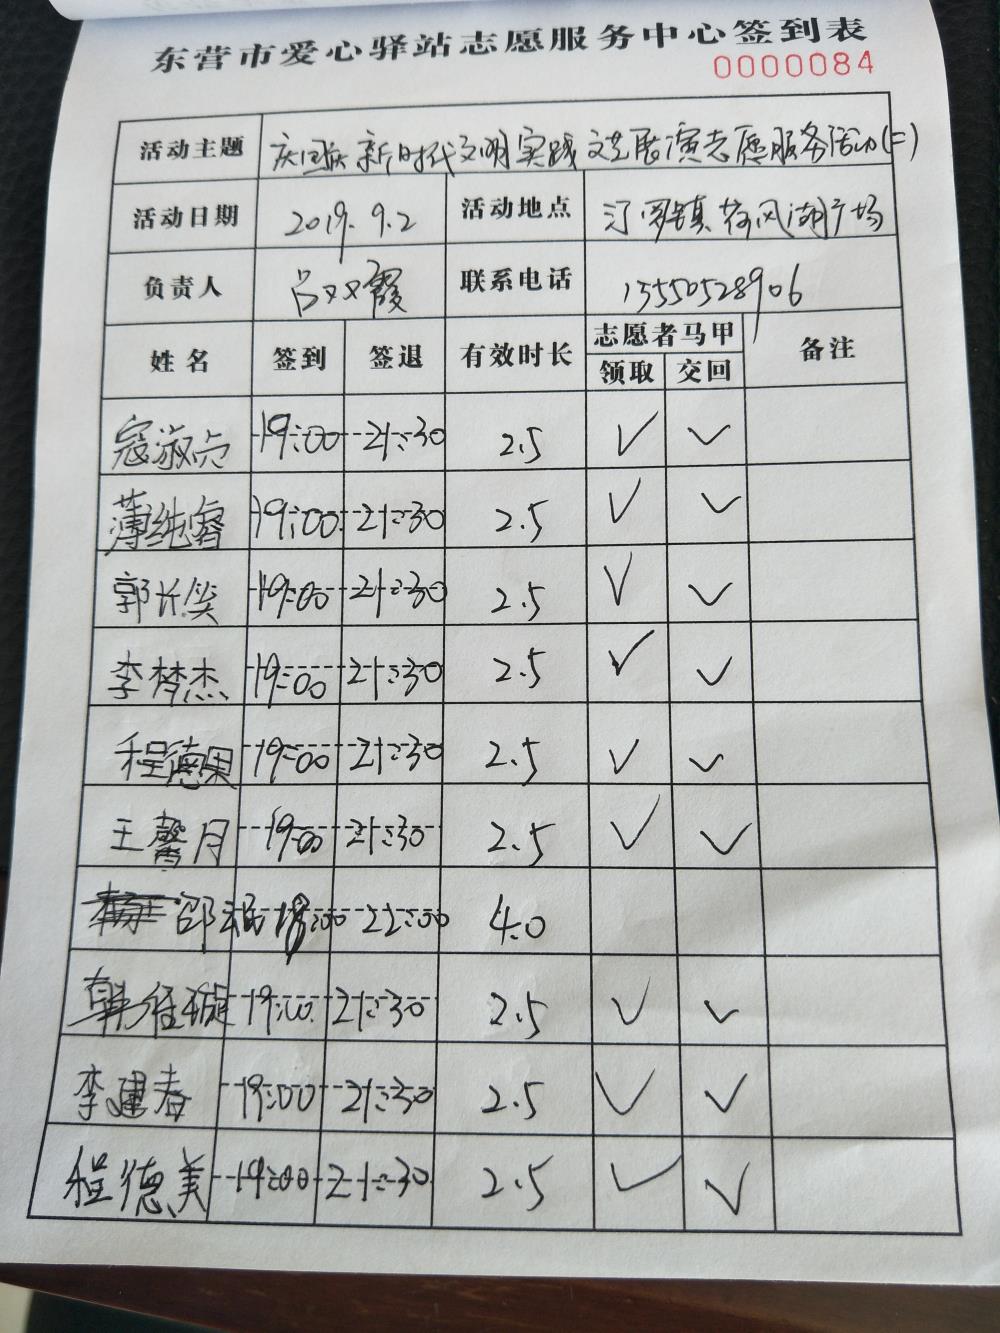 东营市爱心驿站志愿服务中心签到表
0000084
活动主题 庆国庆新时代文明实践文艺展演志愿服务活动(二)
活动日期 2019.9.2 活动地点 河口镇荷风湖广场
负责人 吕双霞 联系电话 15550528906
姓名 签到 签退 有效时长 志愿者马甲 备注
领取 交回
寇淑贞 19:00 21:30 2.5 ✓ ✓
薄纯睿 19:00 21:30 2.5 ✓ ✓
郭长笑 19:00 21:30 2.5 ✓ ✓
李梦杰 19:00 21:30 2.5 ✓ ✓
程德果 19:00 21:30 2.5 ✓ ✓
王馨月 19:00 21:30 2.5 ✓ ✓
邵 18:00 22:00 4.0
韩维璇 19:00 21:30 2.5 ✓ ✓
李建春 19:00 21:30 2.5 ✓ ✓
程德美 19:00 21:30 2.5 ✓ ✓